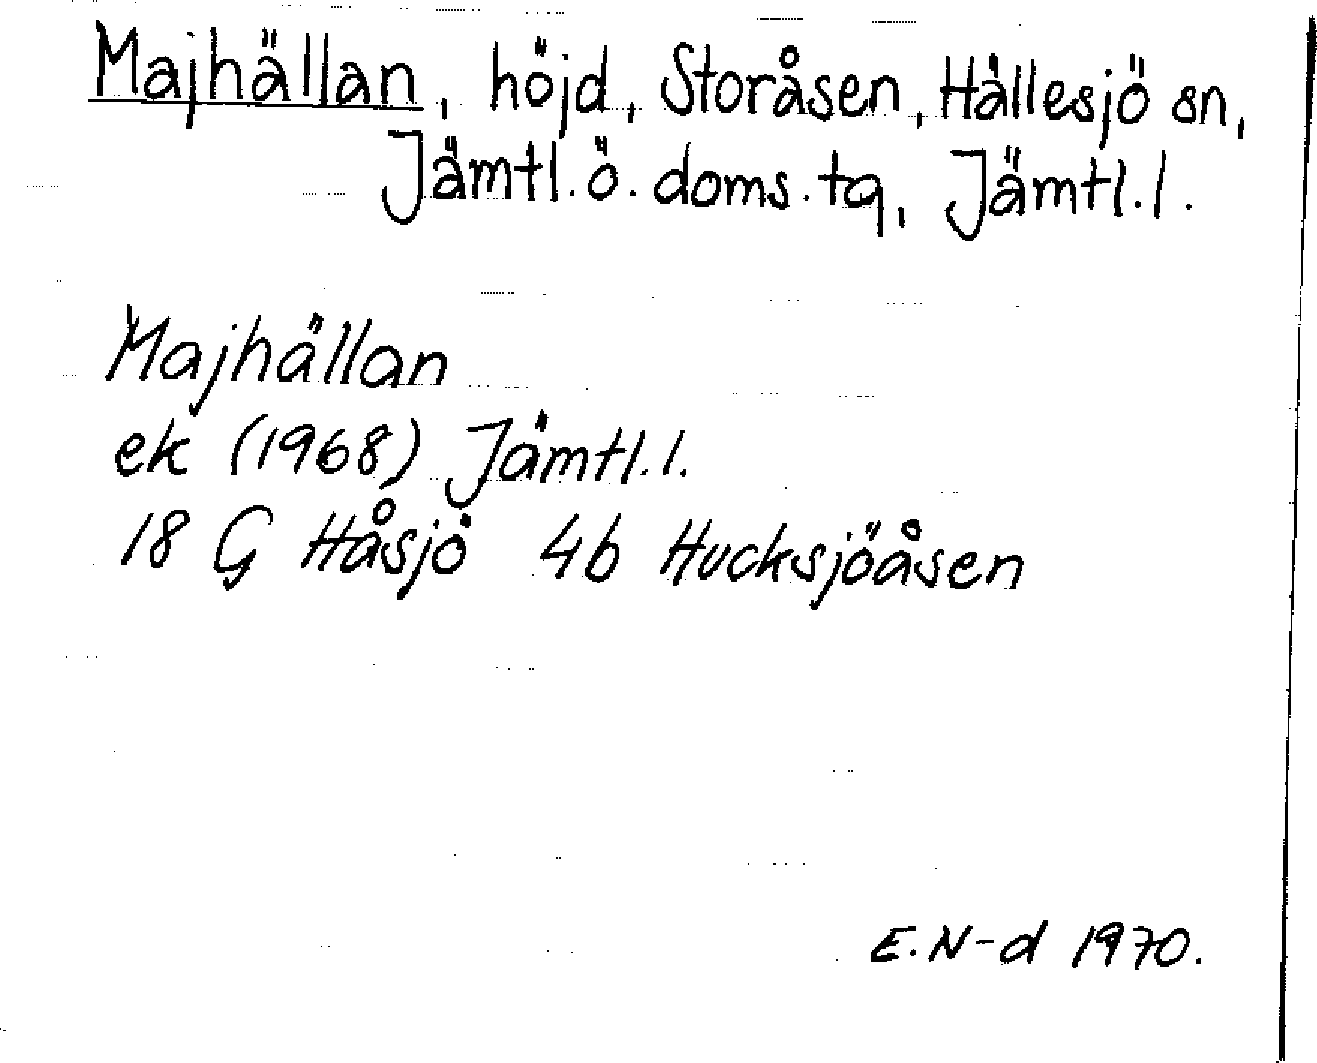 Majhällan, höjd, Storåsen, Hällesjö sn,
Jämtl. ö. doms. tg, Jämtl. l.
Majhällan
ek (1968) Jämtl. l.
18 G Håsjö 4b Hucksjöåsen
E. N-d 1970.